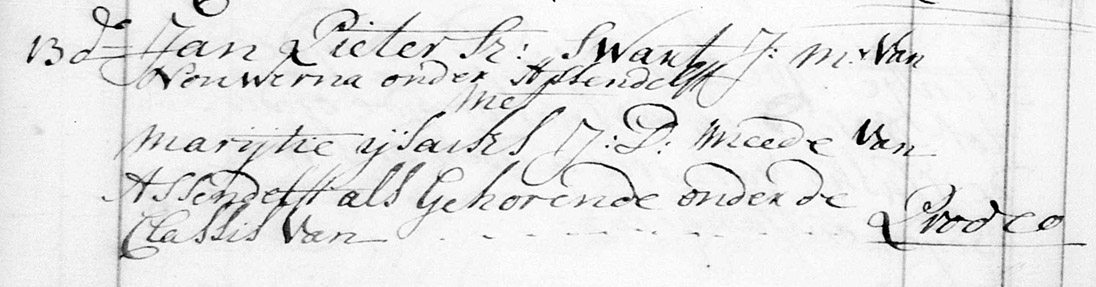 13 d:o Jan Pieter Sz: Swart J: m: van
Nouwerna onder Assendelff
met
Marijtie ijsaiks J: D: meede van
Assendelff als Gehorende onder de
Classis van - - - - - - - - - - Prodeo